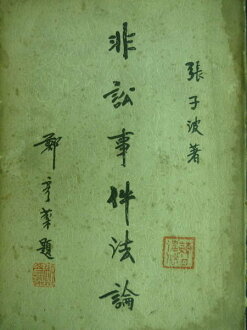 張子波著
非訟事件法論
鄭彥棻題